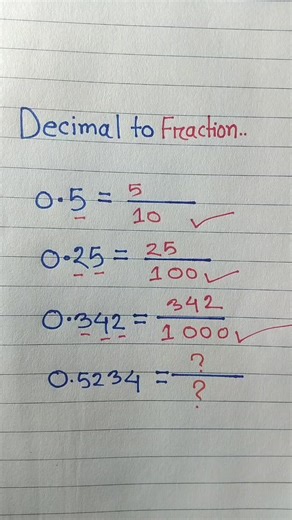 Decimal to Fraction..
0.5 = 5/10 ✓
0.25 = 25/100 ✓
0.342 = 342/1000 ✓
0.5234 = ?/?